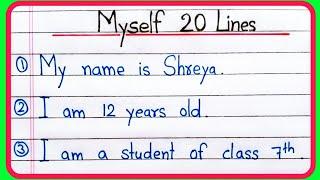 Myself 20 Lines
① My name is Shreya.
② I am 12 years old.
③ I am a student of class 7th.